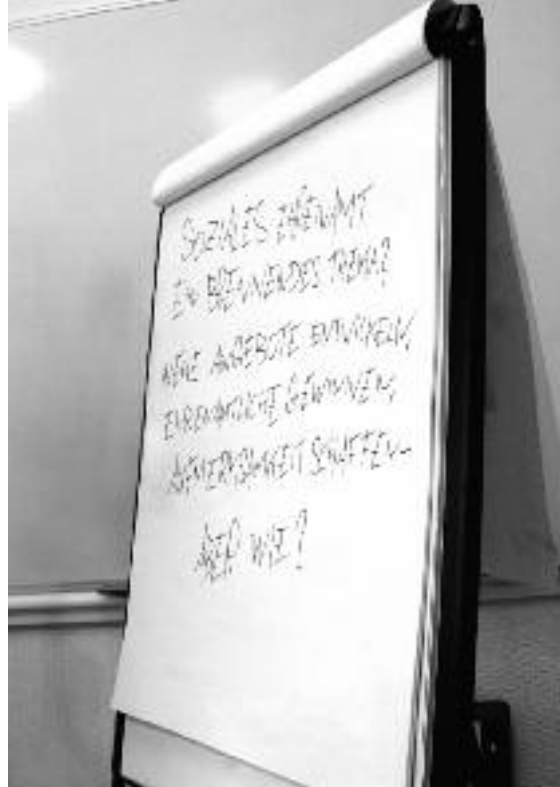 SOZIALES EHRENAMT
EIN BRENNENDES THEMA?
NEUE ANGEBOTE ENTWICKELN,
EHRENAMTLICHE GEWINNEN,
AUFMERKSAMKEIT SCHAFFEN–
ABER WIE?